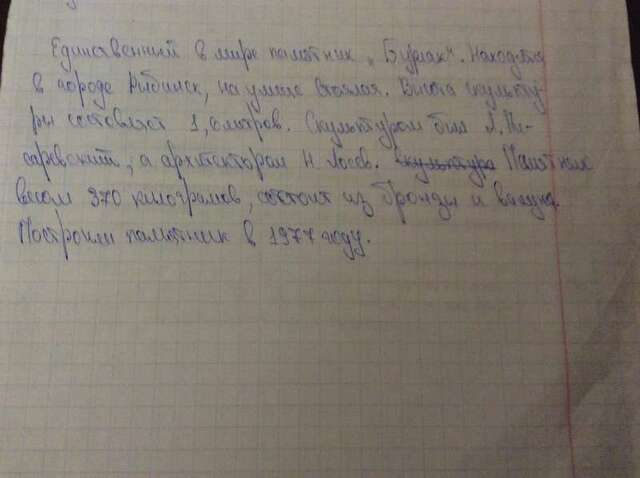 Единственный в мире памятник „Бурлак“. Находится
в городе Рыбинск, на улице Стоялая. Высота скульпту-
ры составляет 1, 6 метров. Скульптуром был Л. Пи-
саревский, а архитектором Н. Лосев. скульптура Памятник
весом 370 килограмов, состоит из бронзы и валуна.
Построили памятник в 1977 году.